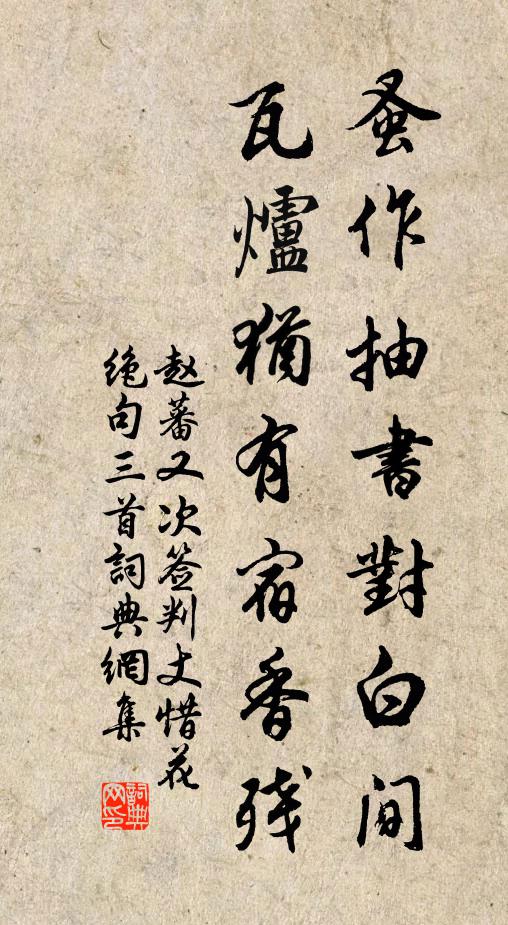 蚤作抽書對白間
瓦爐猶有宿香殘
赵蕃又次签判丈惜花
绝句三首詞典網集
詞典网印